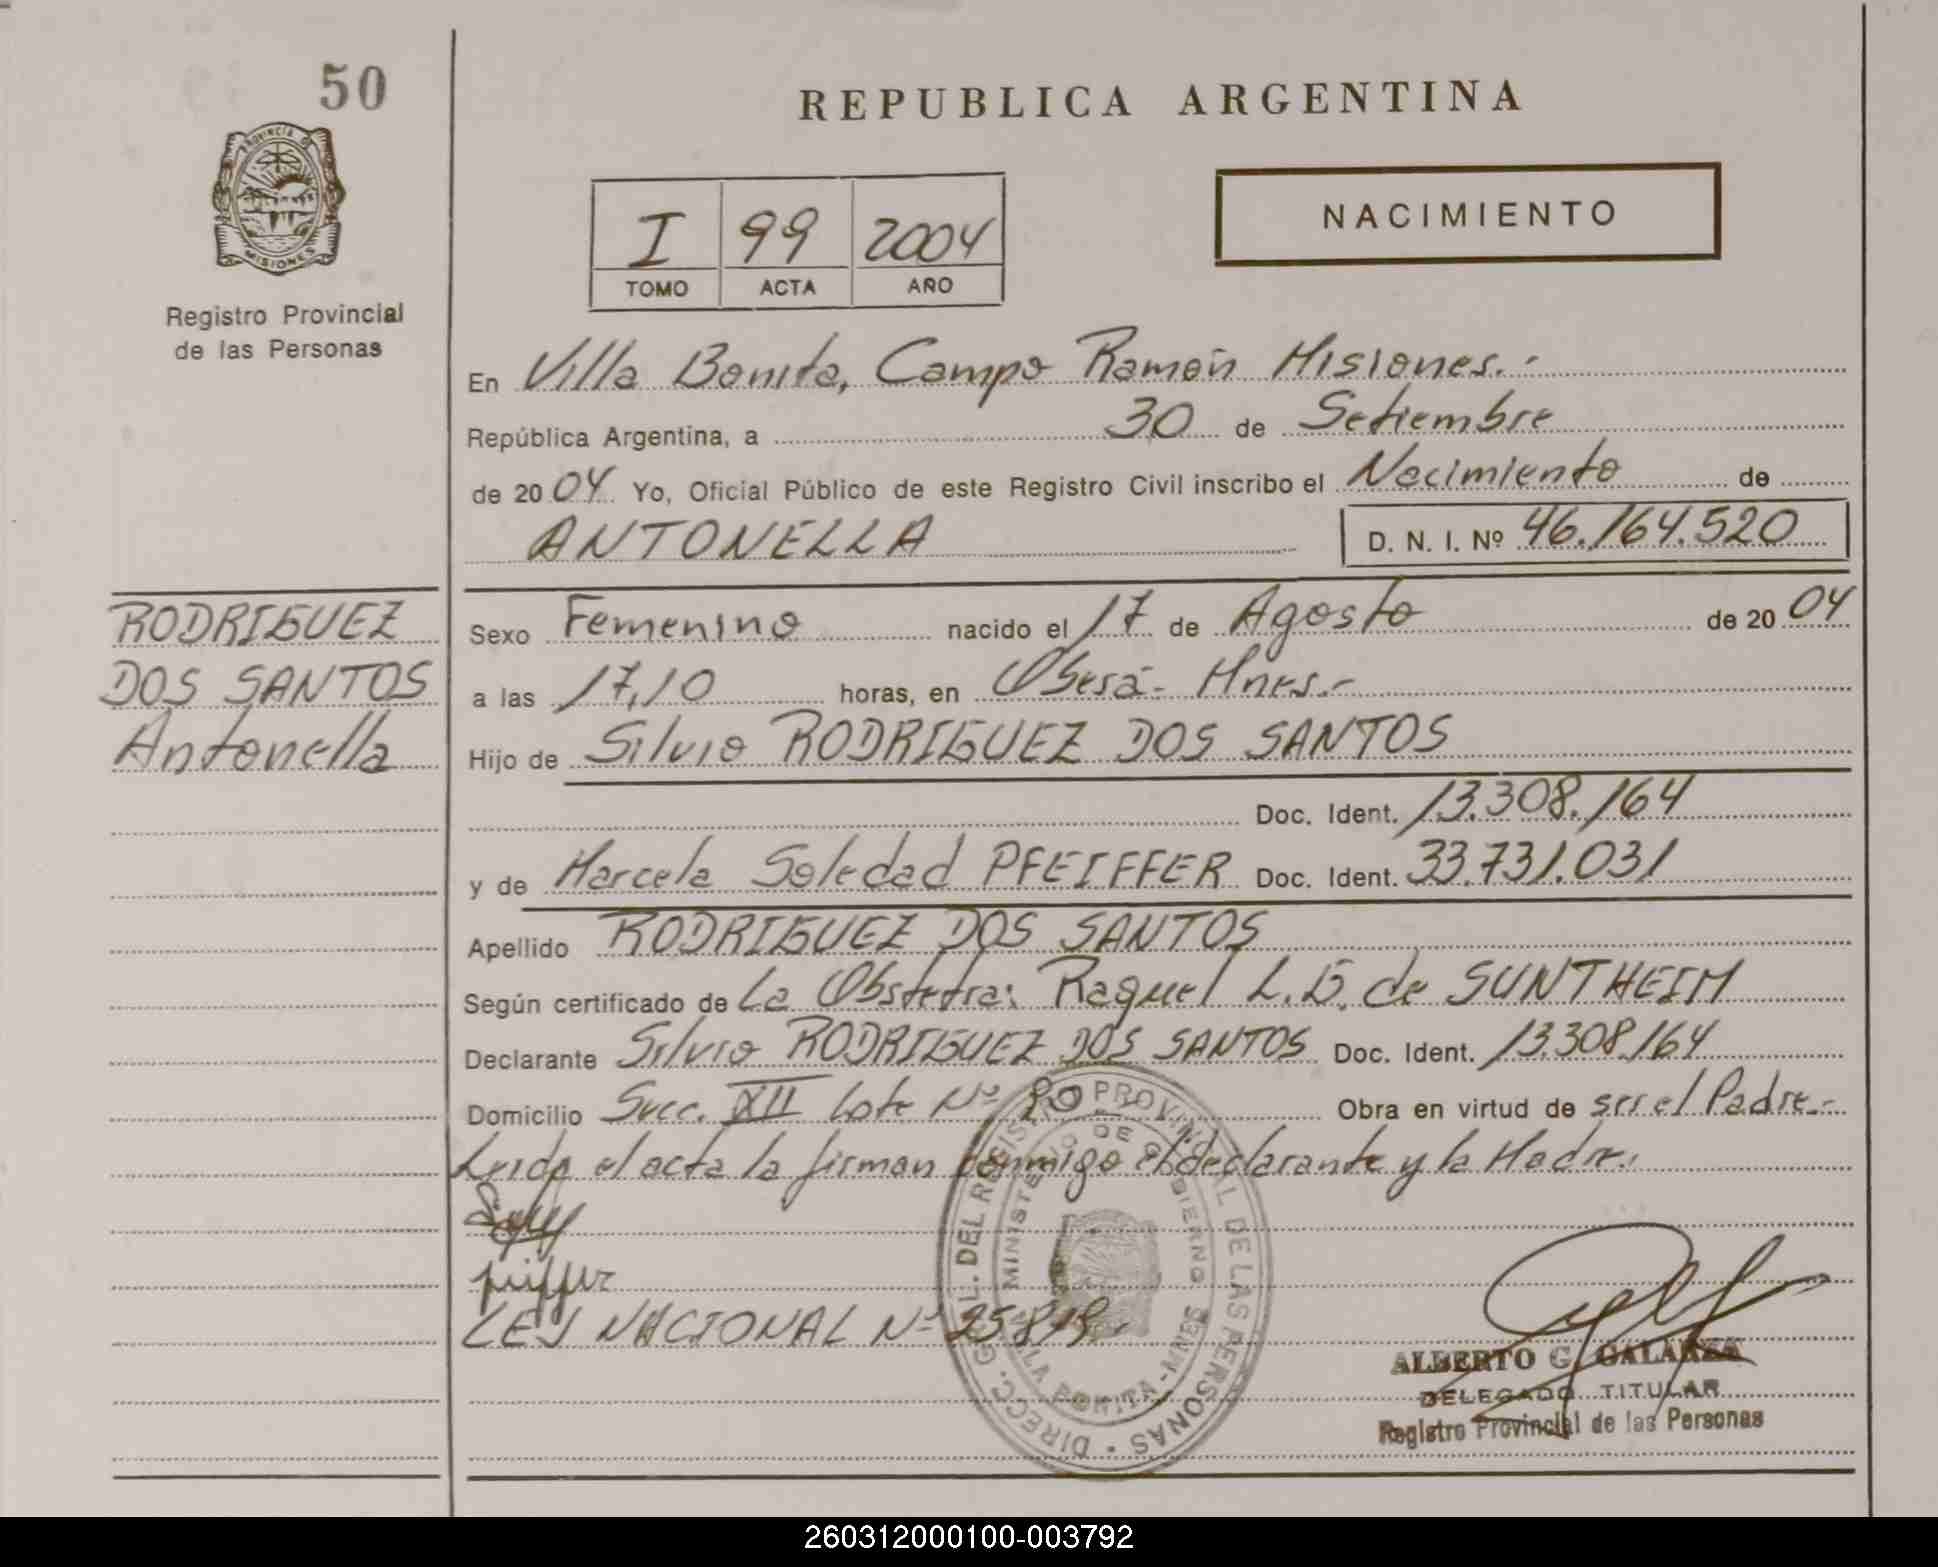 50
PROVINCIA DE
MISIONES
Registro Provincial
de las Personas
REPUBLICA ARGENTINA
I 99 2004
TOMO ACTA AÑO
NACIMIENTO
En Villa Bonita, Campo Ramón Misiones.-
República Argentina, a 30 de Setiembre
de 2004 Yo, Oficial Público de este Registro Civil inscribo el Nacimiento de
ANTONELLA D. N. I. Nº 46.164.520
RODRIGUEZ
DOS SANTOS
Antonella
Sexo Femenino nacido el 17 de Agosto de 2004
a las 17,10 horas, en Oberá- Mnes.-
Hijo de Silvio RODRIGUEZ DOS SANTOS
Doc. Ident. 13.308.164
y de Marcela Soledad PFEIFFER Doc. Ident. 33.731.031
Apellido RODRIGUEZ DOS SANTOS
Según certificado de La Obstetra: Raquel L. de SUNTHEIM
Declarante Silvio RODRIGUEZ DOS SANTOS Doc. Ident. 13.308.164
Domicilio Secc. XII Lote Nº Obra en virtud de ser el Padre.-
Leida el acta la firman conmigo el declarante y la Madre.
LEY NACIONAL Nº
DIRECC. GRAL. DEL REGISTRO PROVINCIAL DE LAS PERSONAS
MINISTERIO DE GOBIERNO
VILLA BONITA - MNES
ALBERTO G. GALARZA
DELEGADO TITULAR
Registro Provincial de las Personas
260312000100-003792